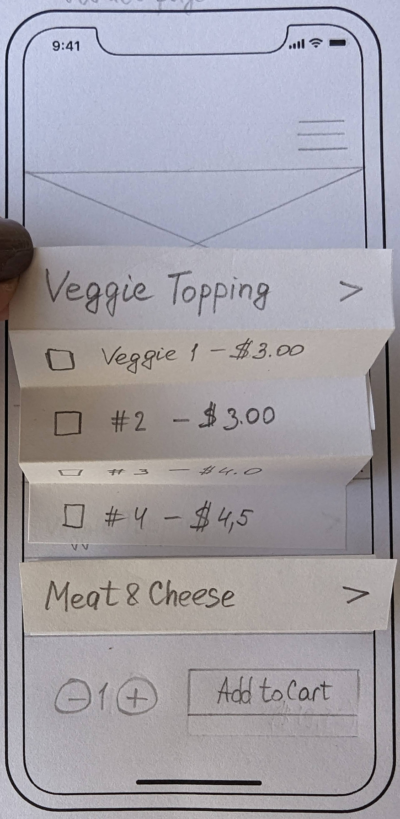 9:41
Veggie Topping >
Veggie 1 - $3.00
#2 - $3.00
#3 - $4.0
#4 - $4,5
Meat & Cheese >
- 1 +
Add to Cart